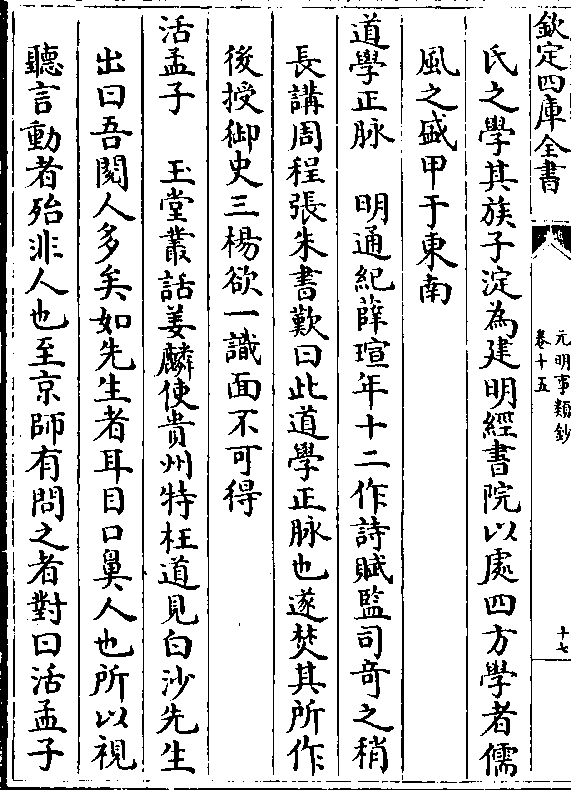 欽定四庫全書
元明事類鈔
卷十五
十七
氏之學其族子淀為建明經書院以處四方學者儒
風之盛甲于東南
道學正脉　明通紀薛瑄年十二作詩賦監司竒之稍
長講周程張朱書歎曰此道學正脉也遂焚其所作
後授御史三楊欲一識面不可得
活孟子　玉堂叢話姜麟使貴州特枉道見白沙先生
出曰吾閱人多矣如先生者耳目口鼻人也所以視
聽言動者殆非人也至京師有問之者對曰活孟子